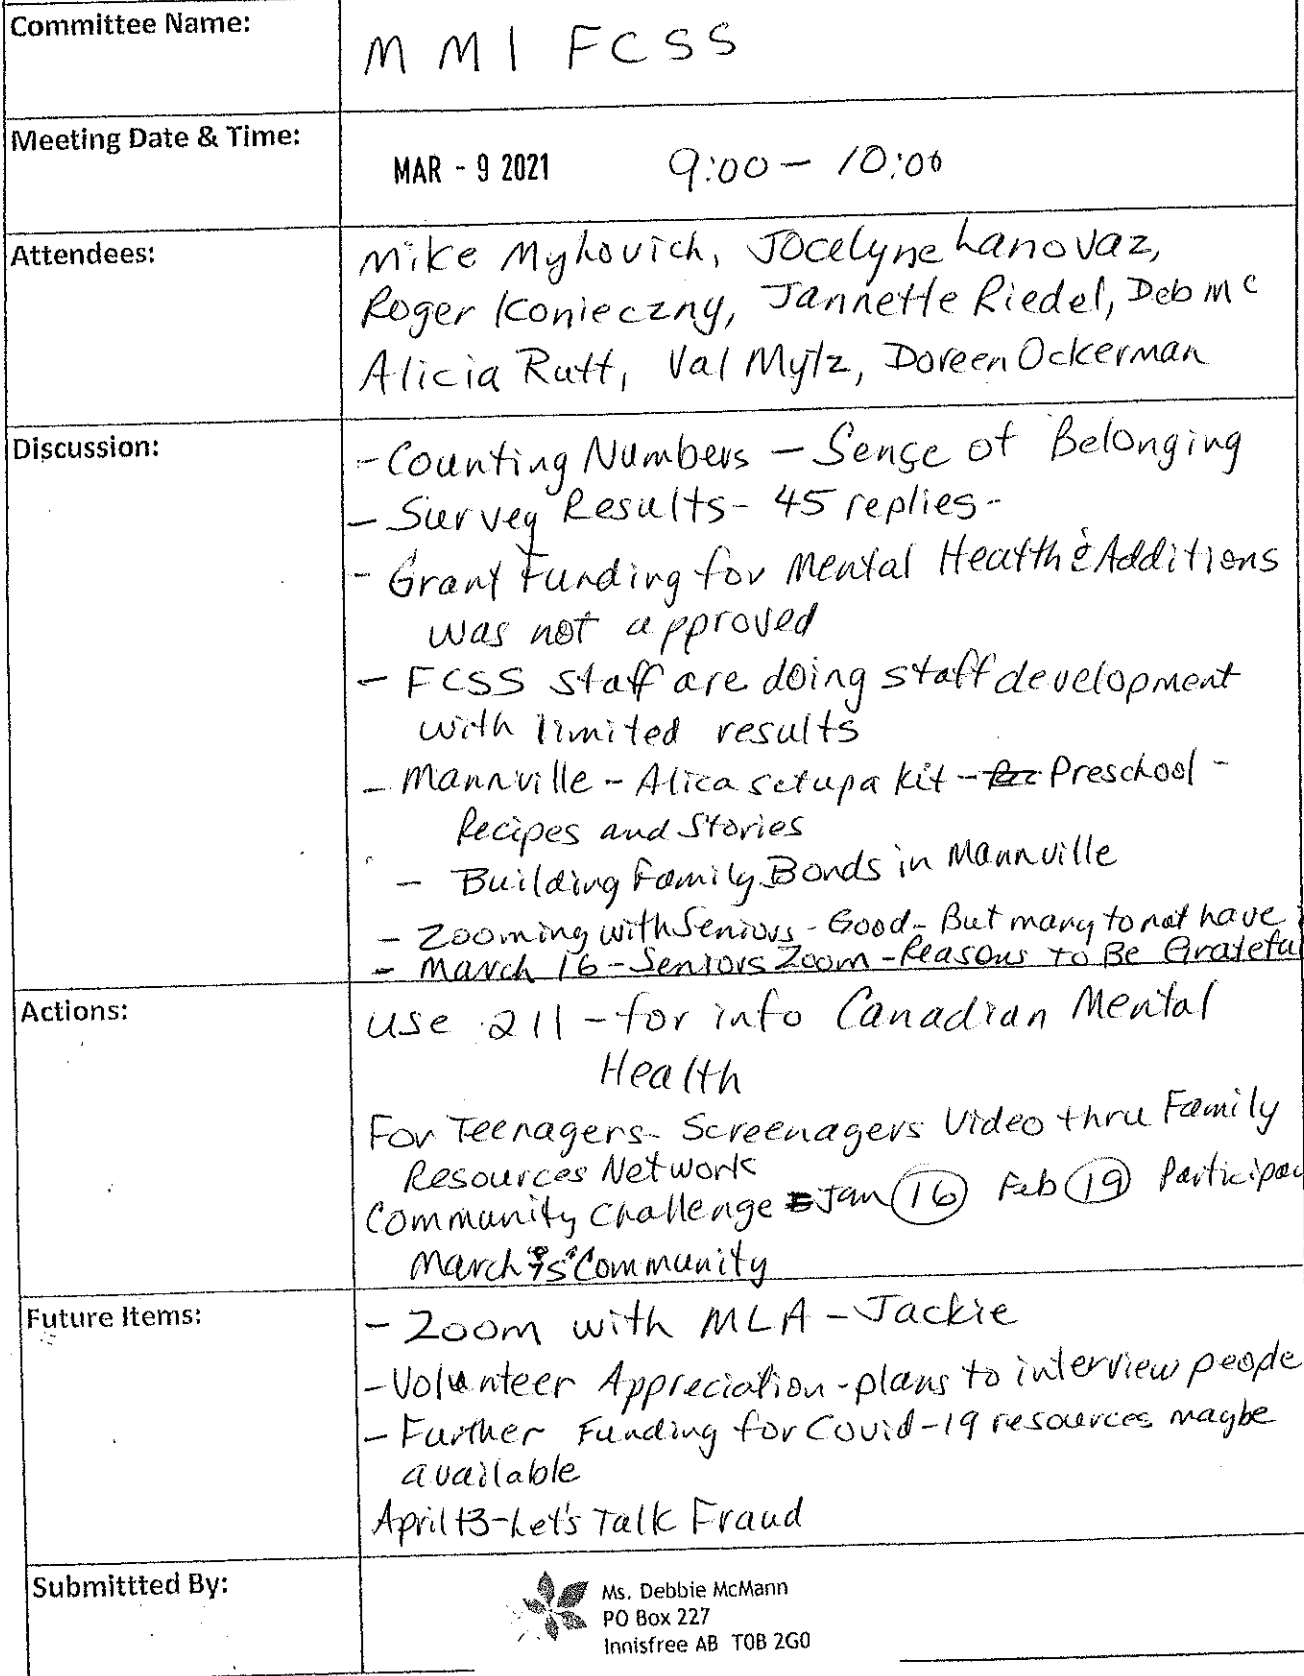 Committee Name:
M M I FCSS
Meeting Date & Time:
MAR - 9 2021 9:00 - 10:00
Attendees:
Mike Myhovich, Jocelyne Lanovaz,
Roger Konieczny, Jannette Riedel, Deb Mc
Alicia Rutt, Val Myłz, Doreen Ockerman
Discussion:
- Counting Numbers - Sense of Belonging
- Survey Results - 45 replies -
- Grant Funding for Mental Health & Additions
was not approved
- FCSS staff are doing staff development
with limited results
- Mannville - Alica setup a kit - Preschool -
Recipes and Stories
- Building Family Bonds in Mannville
- Zooming with Seniors - Good - But many to not have
- March 16 - Seniors Zoom - Reasons to Be Grateful
Actions:
use 211 - for info Canadian Mental
Health
For Teenagers - Screenagers Video thru Family
Resources Network
Community Challenge Jan 16 Feb 19 Particpac
March is Community
Future Items:
- Zoom with MLA - Jackie
- Volunteer Appreciation - plans to interview people
- Further Funding for Covid-19 resources maybe
available
April 13 - Let's Talk Fraud
Submittted By:
Ms. Debbie McMann
PO Box 227
Innisfree AB T0B 2G0